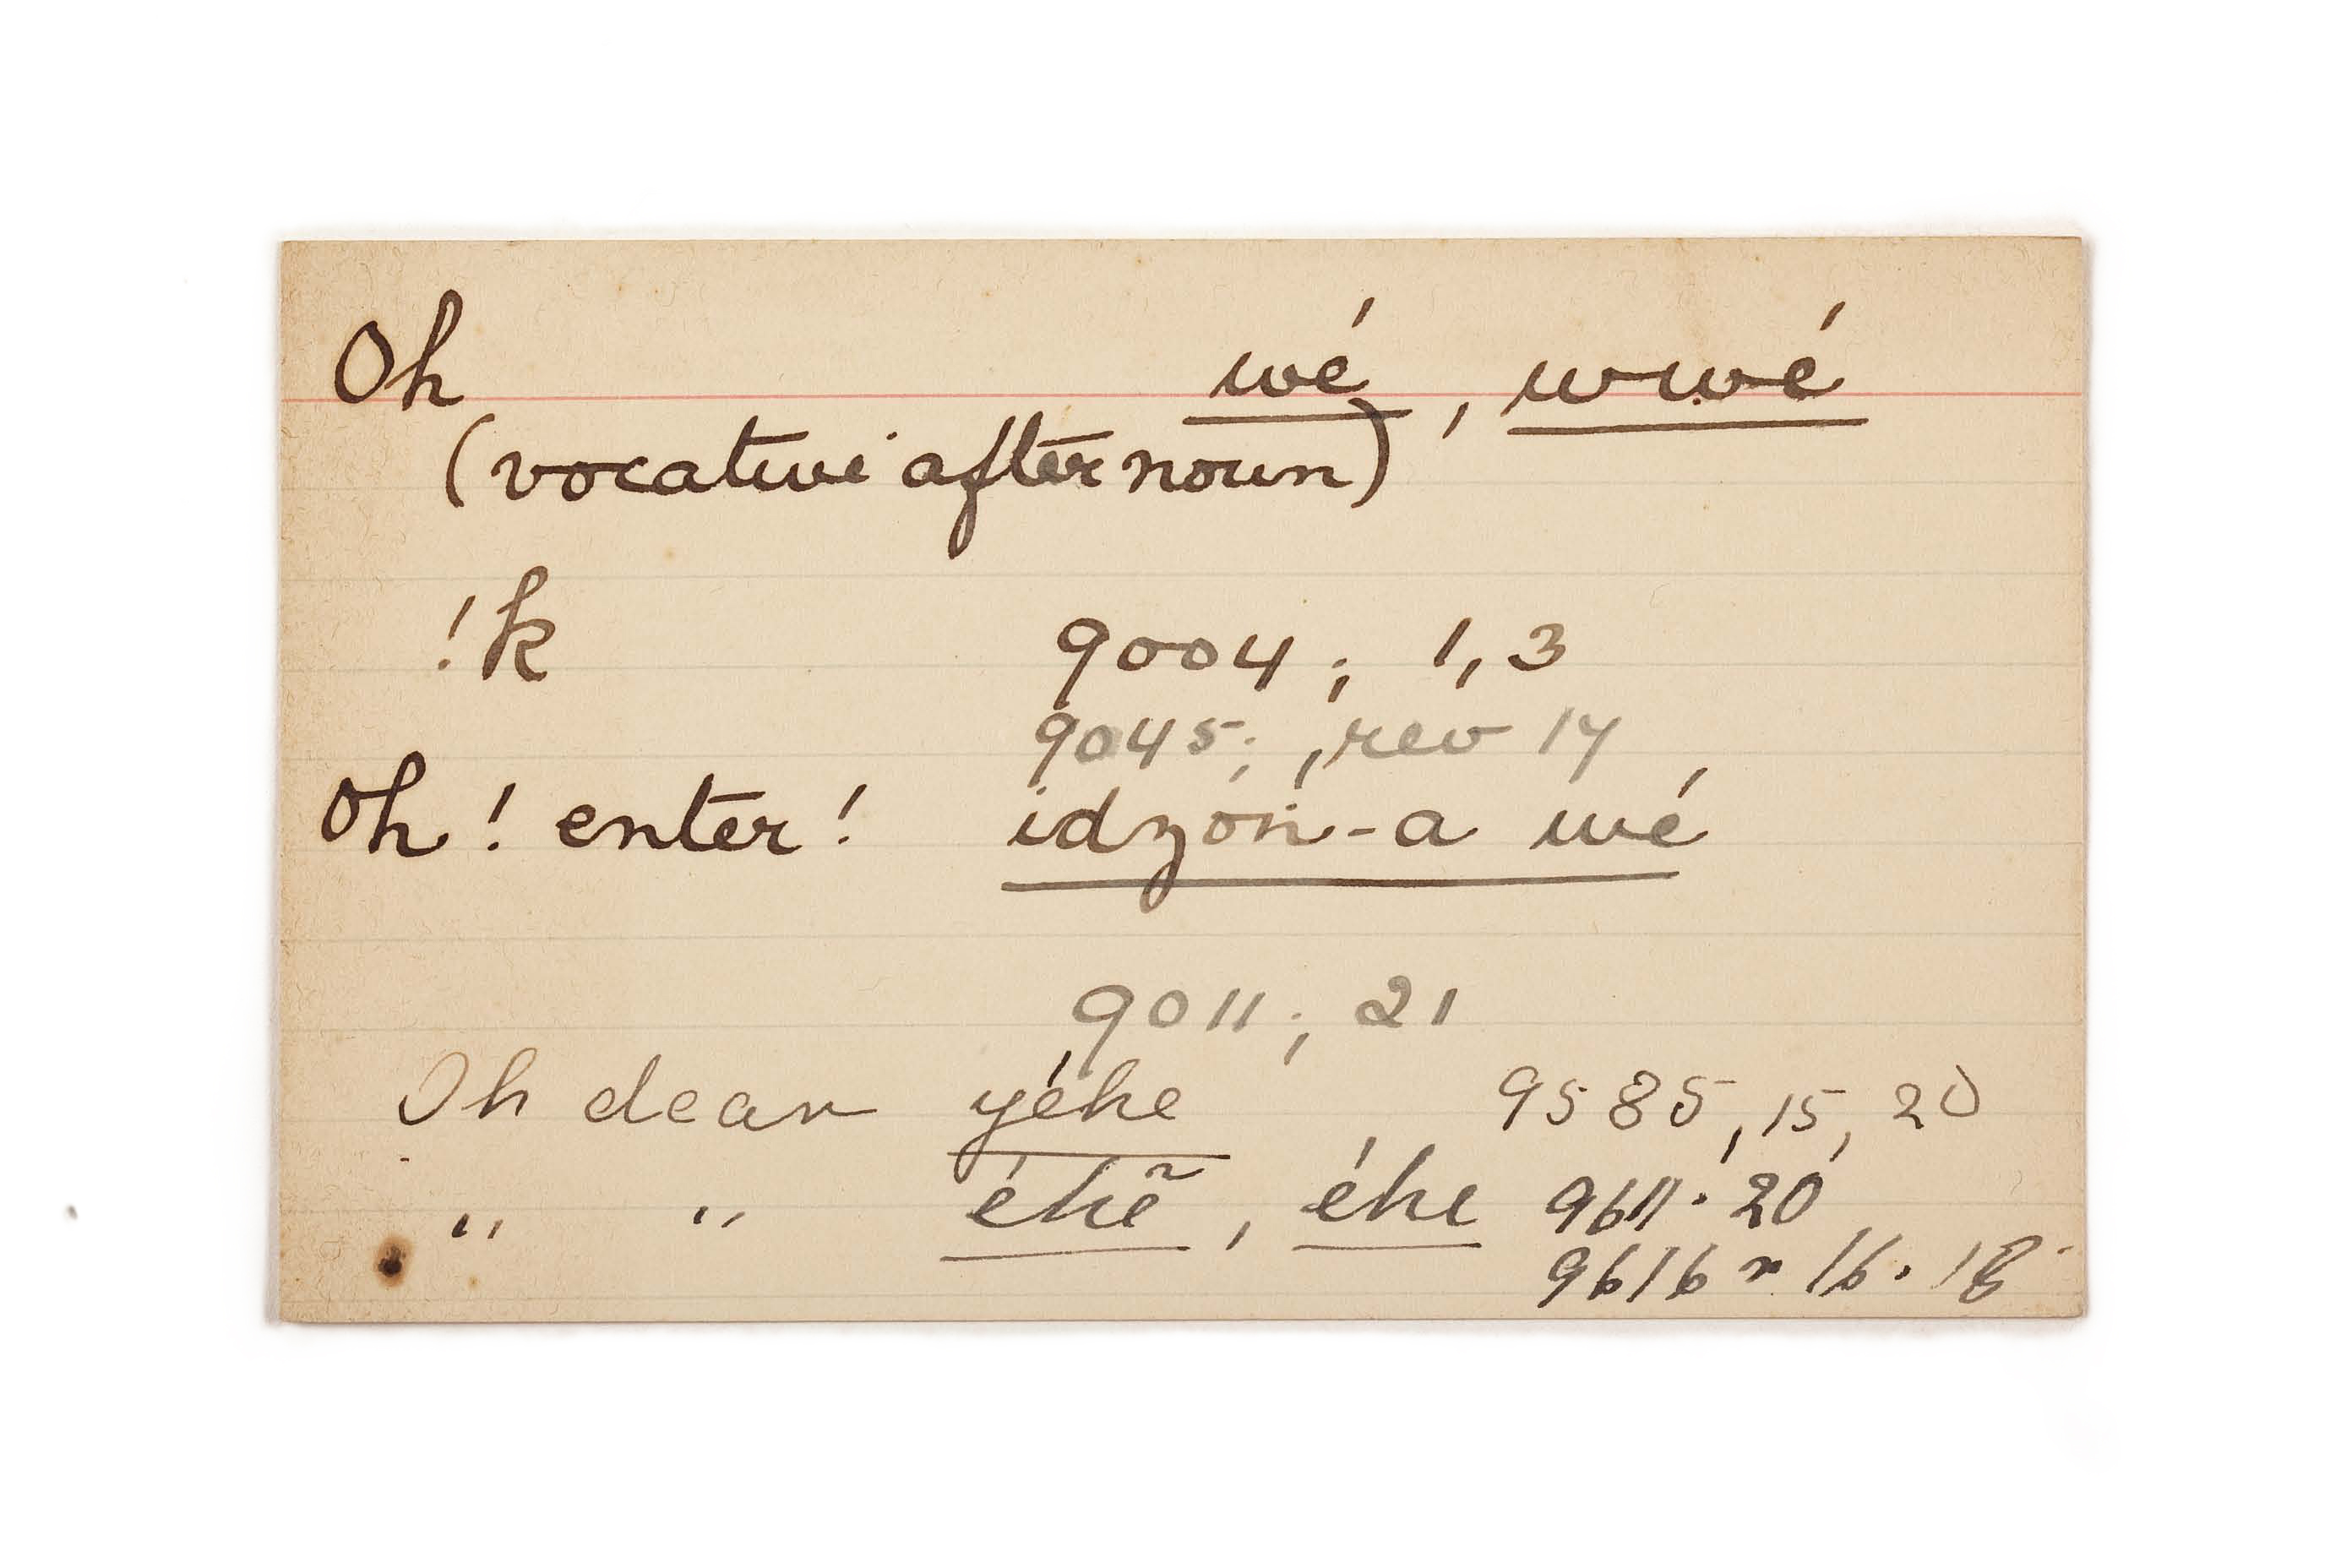 Oh wé, wwé
(vocative after noun)
!k 9004; 1,3
9045; rev 14
Oh! enter! idzoń-a wé
9011; 21
Oh dear yéhe 9585, 15, 20
" " éhẽ, éhe 9611. 20
9616 r 16. 18